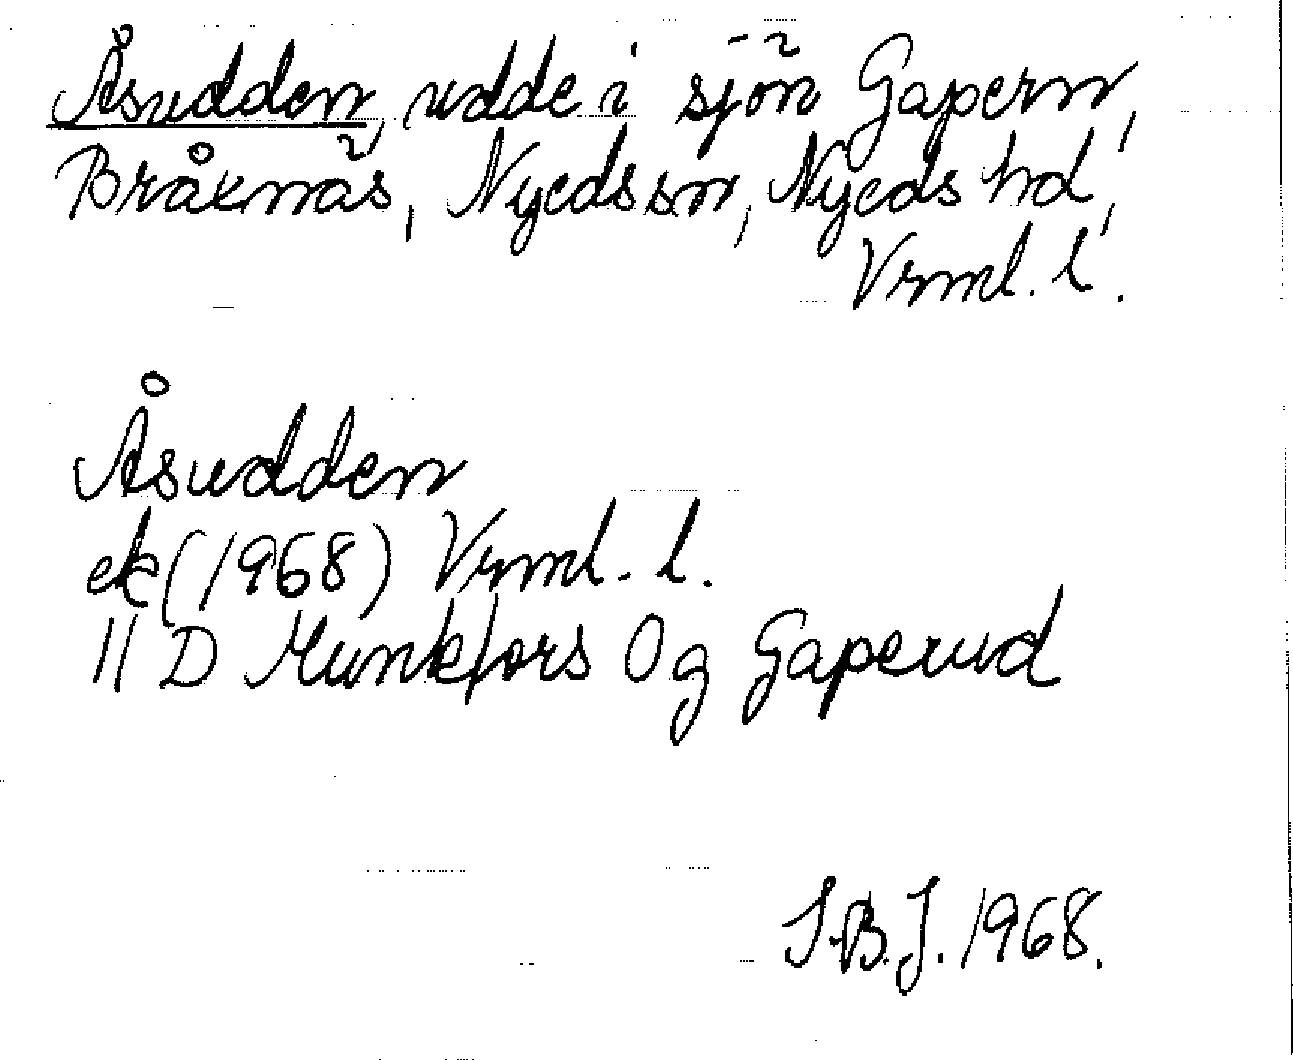 Åsudden, udde i sjön Gapern,
Bråknäs, Nyeds sn, Nyeds hd,
Vrml. l.
Åsudden
ek (1968) Vrml. l.
11 D Munkfors 0 g Gaperud
I.B.J. 1968.